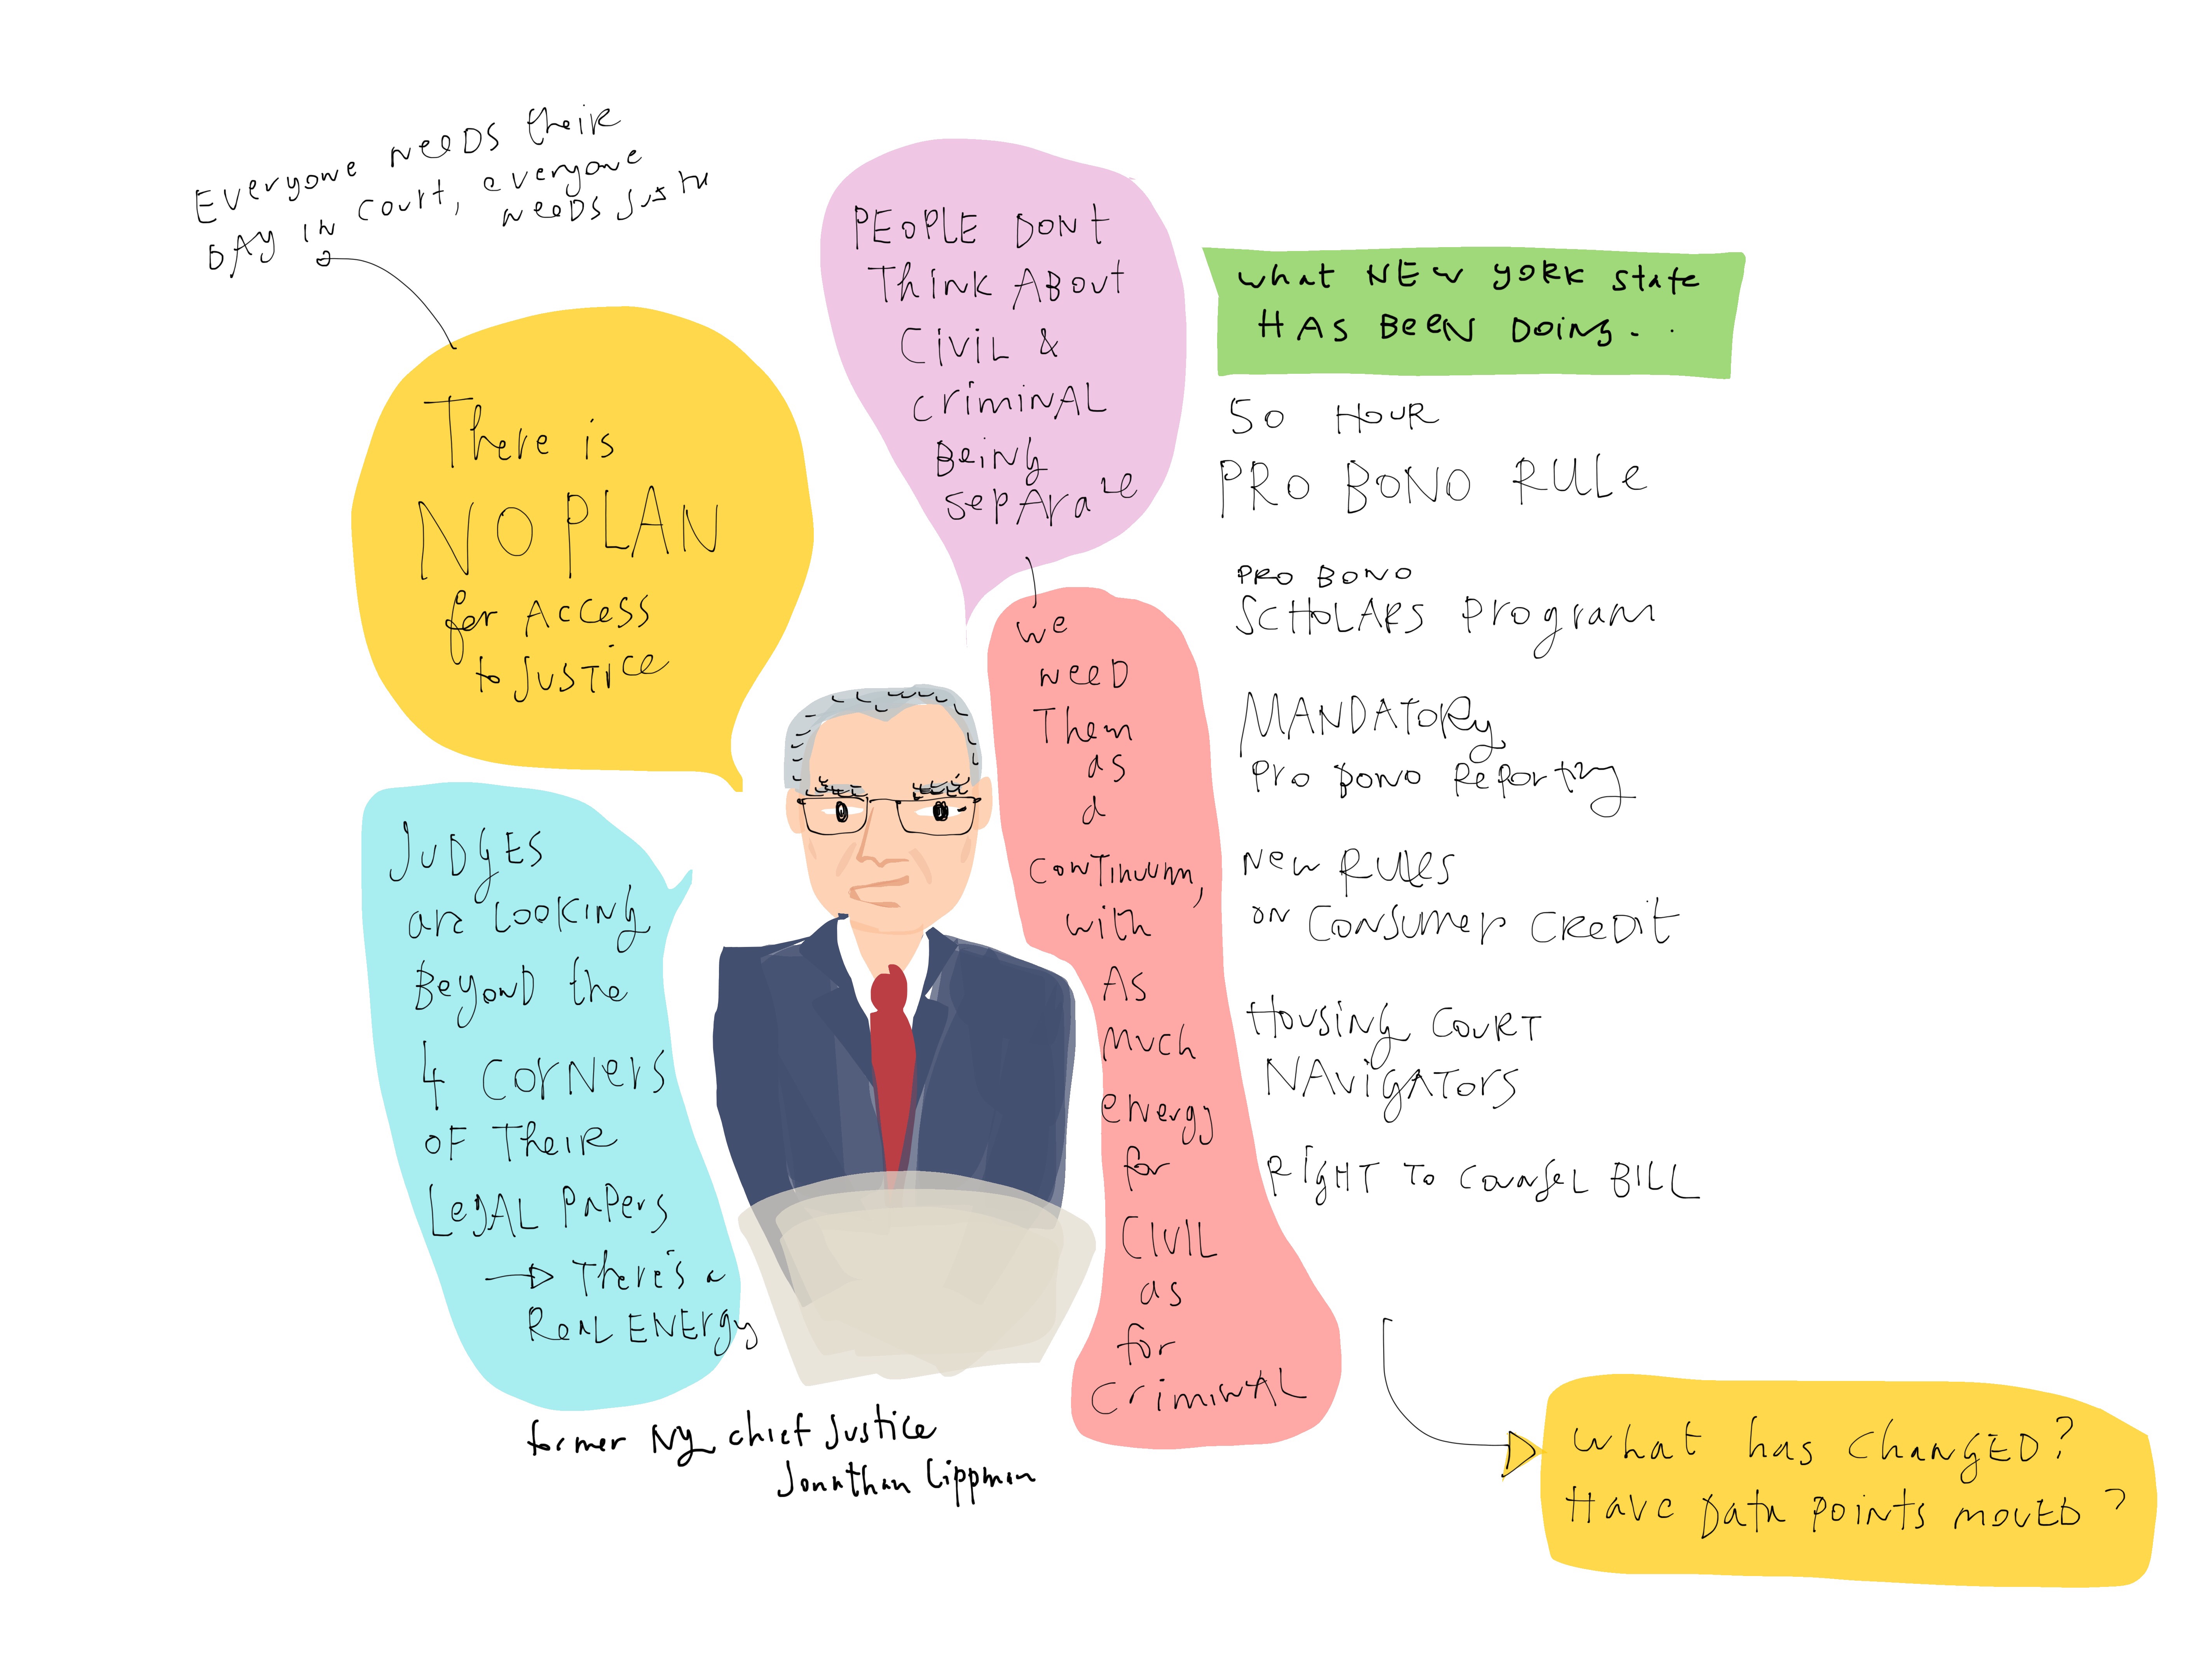 Everyone needs their
day in court, everyone
needs
There is
NO PLAN
for access
to Justice
Judges
are looking
beyond the
4 corners
of their
legal papers
→ There's a
real energy
PEOPLE DONT
Think About
Civil &
criminal
Being
separate
we
need
Them
as
a
continuum,
with
As
much
energy
for
CIVIL
as
for
criminal
former NY chief Justice
Jonathan Lippman
what NEW YORK state
HAS BEEN DOING. . .
50 HOUR
PRO BONO RULE
PRO BONO
SCHOLARS Program
MANDATORY
pro bono Reporting
new RULES
on CONSUMER CREDIT
Housing COURT
NAVIGATORS
RIGHT TO COUNSEL BILL
what has CHANGED?
HAVE DATA POINTS MOVED?